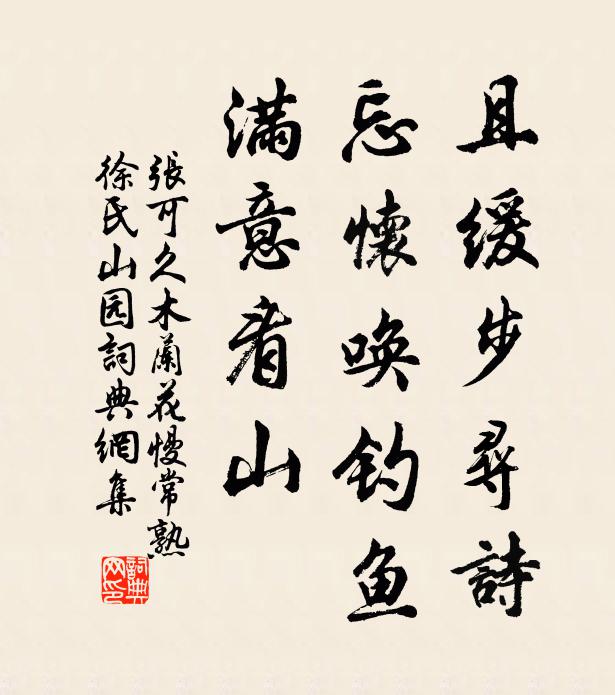 且缓步尋詩
忘懷唤钓鱼
滿意看山
張可久木蘭花慢常熟
徐氏山园詞典網集
詞典网印